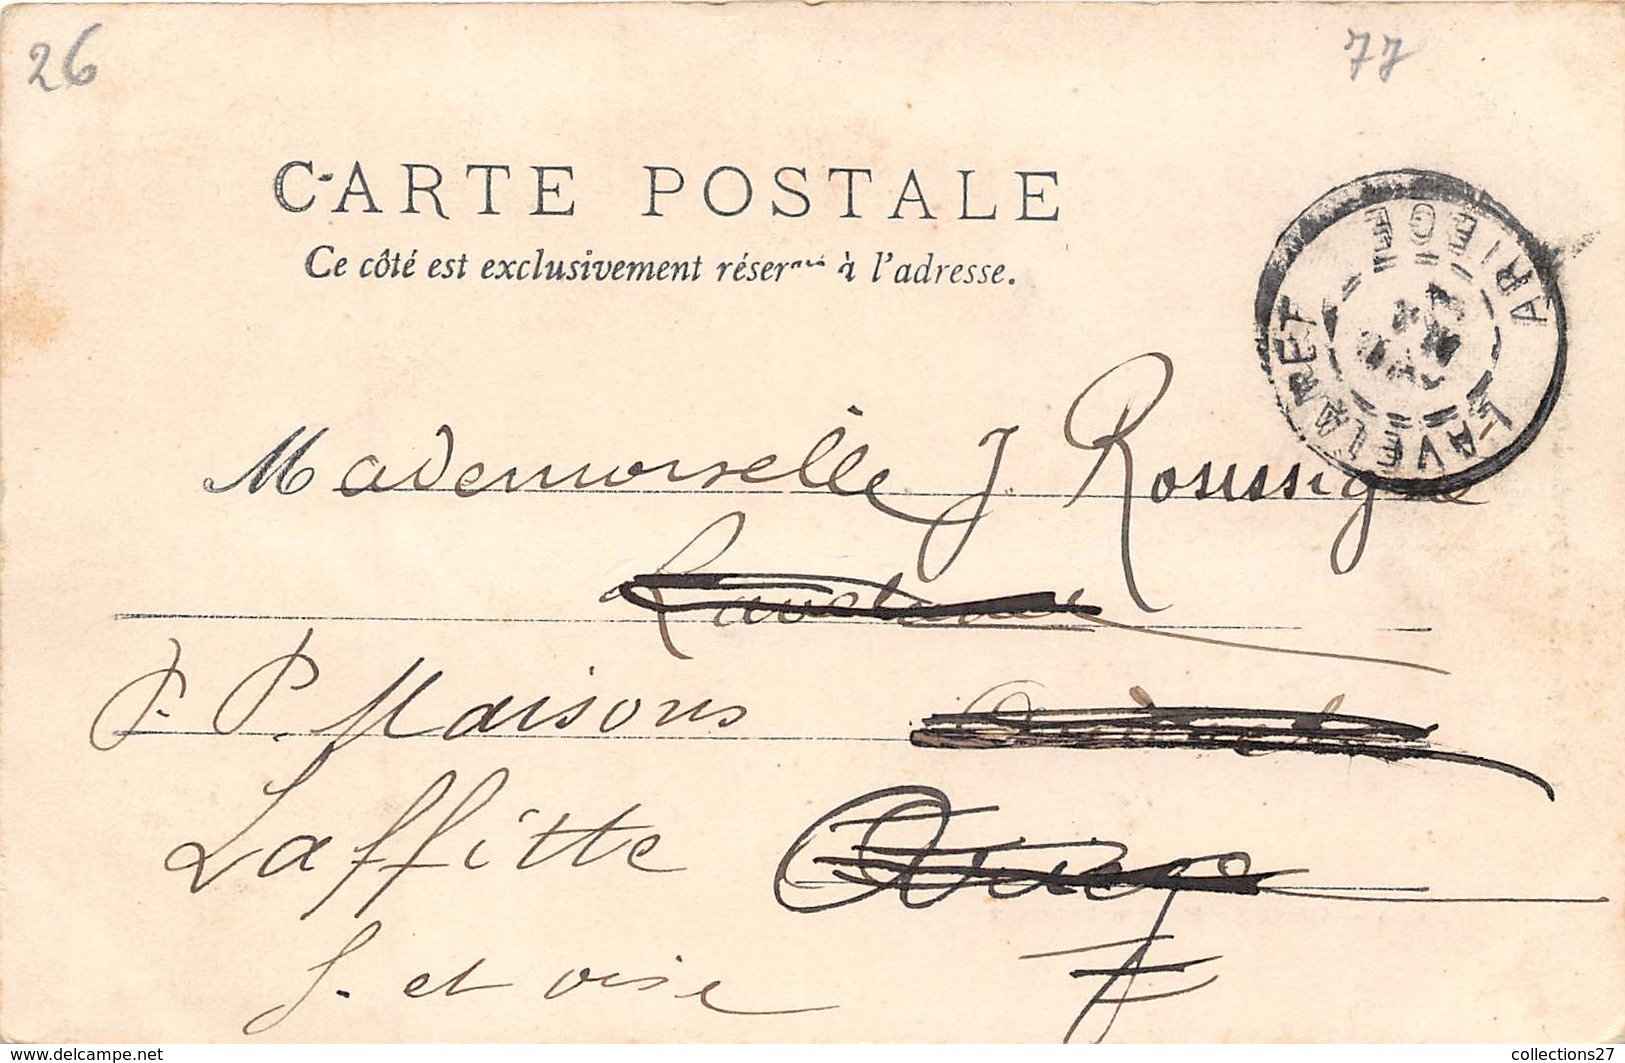 26
77
CARTE POSTALE
Ce côté est exclusivement réservé à l'adresse.
LAVELANET
ARIEGE
Mademoiselle J. Roussigné
Lavelanet
P. P. Maisons
Laffitte Ariège
S. et oise
www.delcampe.net
collections27